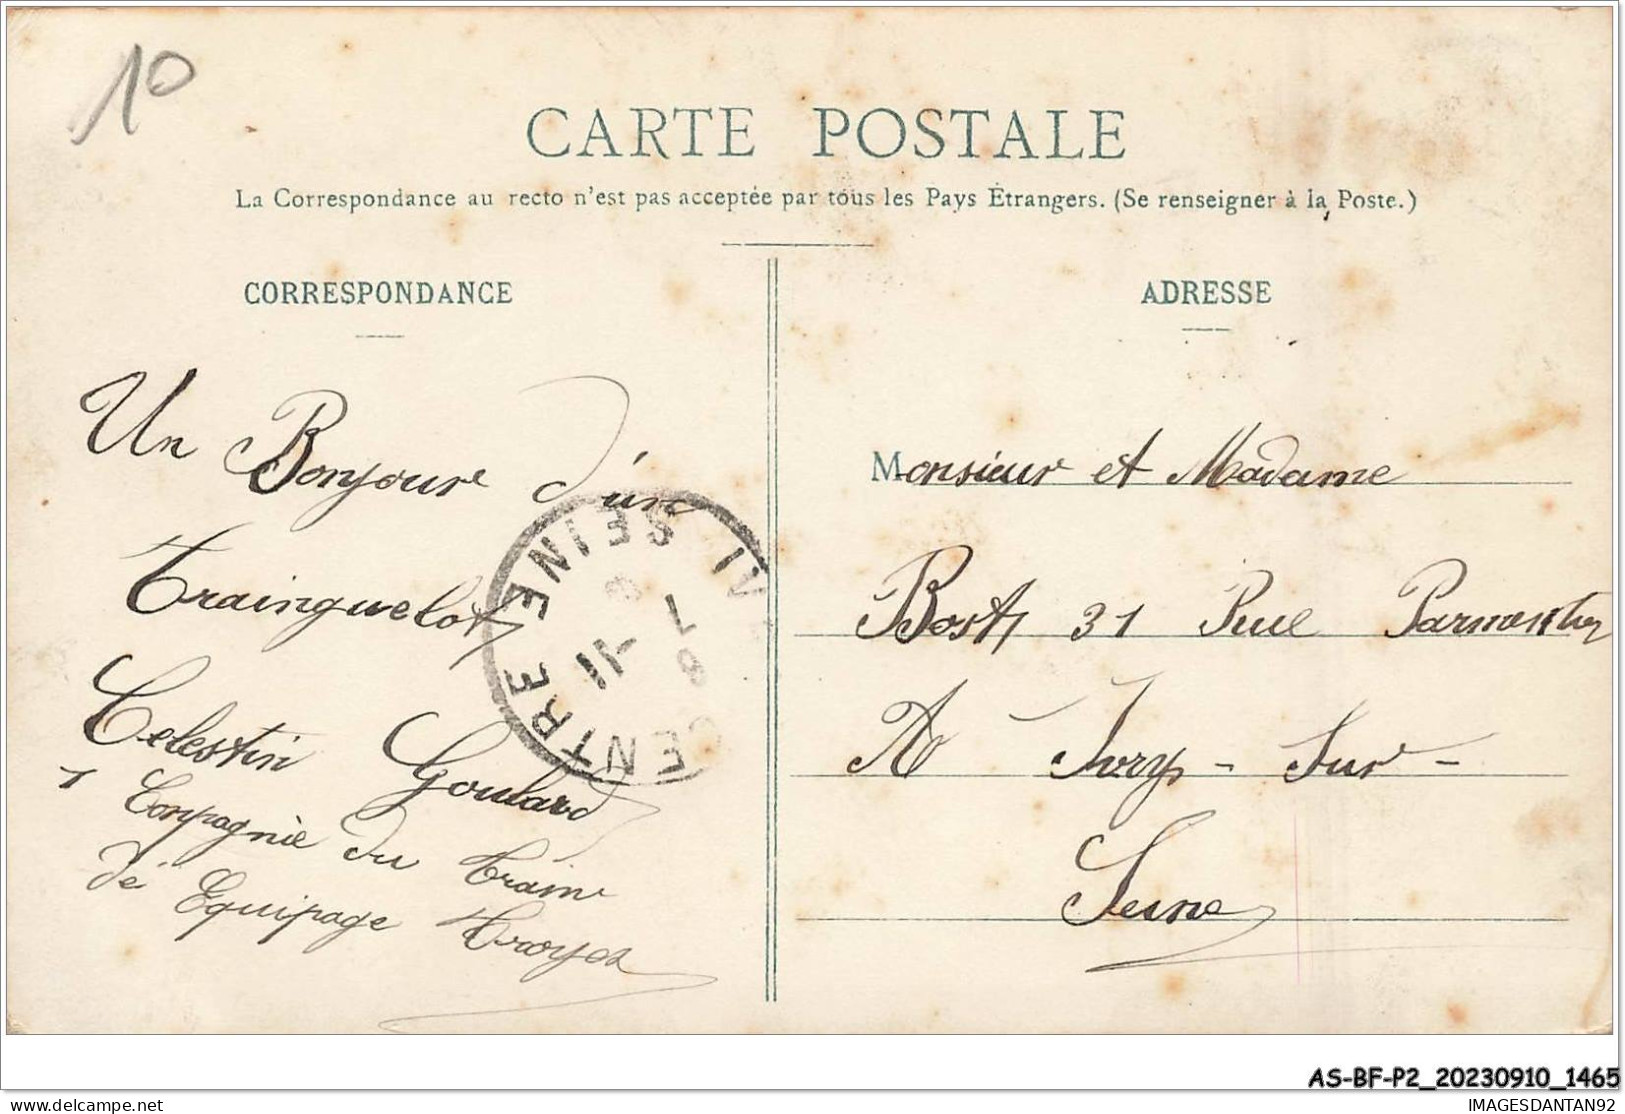 10
CARTE POSTALE
La Correspondance au recto n'est pas acceptée par tous les Pays Étrangers. (Se renseigner à la Poste.)
CORRESPONDANCE
Un Bonjour d'un
Trainguelot
Celestin Goulard
1 Compagnie du train
dé Equipage Troyes
CENTRE
SEINE
ADRESSE
Monsieur et Madame
Bost 31 Rue Parmentier
A Ivry - Sur -
Seine
AS-BF-P2_20230910_1465
delcampe.net
IMAGESDANTAN92